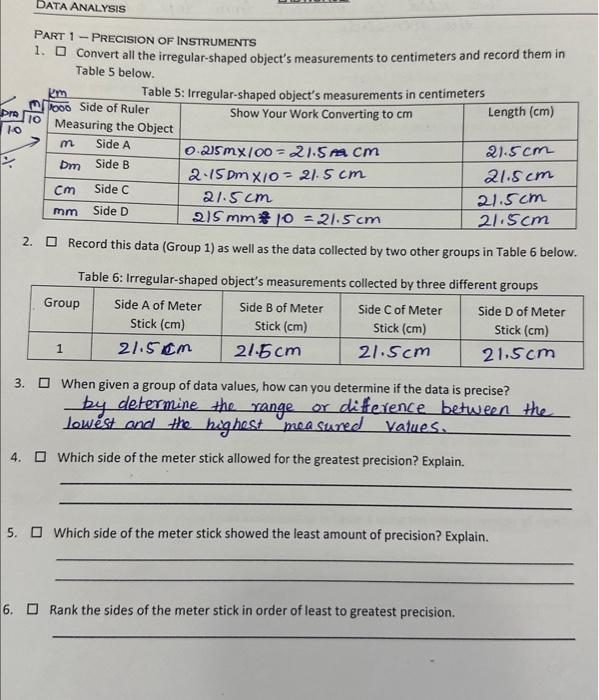 DATA ANALYSIS
PART 1 – PRECISION OF INSTRUMENTS
1. ☐ Convert all the irregular-shaped object's measurements to centimeters and record them in
Table 5 below.
Table 5: Irregular-shaped object's measurements in centimeters
km
m 1000 Side of Ruler
Measuring the Object
Show Your Work Converting to cm
Length (cm)
Dm 10
10
÷
m Side A 0.215m×100 = 21.5 cm 21.5cm
Dm Side B 2.15Dm×10 = 21.5 cm 21.5cm
Cm Side C 21.5cm 21.5cm
mm Side D 215mm÷10 = 21.5cm 21.5cm
2. ☐ Record this data (Group 1) as well as the data collected by two other groups in Table 6 below.
Table 6: Irregular-shaped object's measurements collected by three different groups
Group
Side A of Meter
Stick (cm)
Side B of Meter
Stick (cm)
Side C of Meter
Stick (cm)
Side D of Meter
Stick (cm)
1 21.5cm 21.5cm 21.5cm 21.5cm
3. ☐ When given a group of data values, how can you determine if the data is precise?
by determine the range or difference between the
lowest and the highest measured values.
4. ☐ Which side of the meter stick allowed for the greatest precision? Explain.
5. ☐ Which side of the meter stick showed the least amount of precision? Explain.
6. ☐ Rank the sides of the meter stick in order of least to greatest precision.